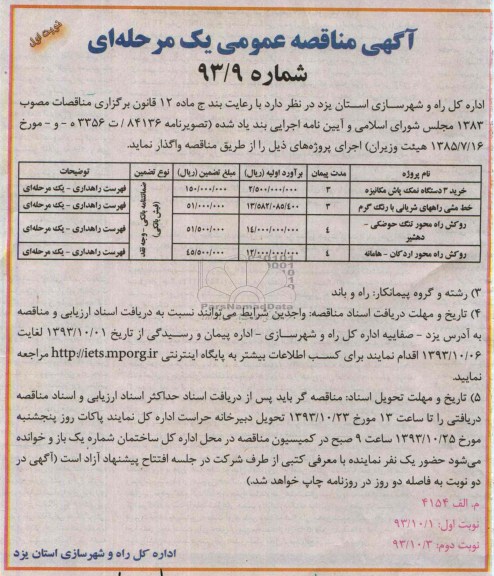 نوبت اول
آگهی مناقصه عمومی یک مرحله‌ای
شماره ۹۳/۹
اداره کل راه و شهرسازی استان یزد در نظر دارد با رعایت بند ج ماده ۱۲ قانون برگزاری مناقصات مصوب
۱۳۸۳ مجلس شورای اسلامی و آیین نامه اجرایی بند یاد شده (تصویرنامه ۸۴۱۳۶ / ت ۳۳۵۶ ه - و - مورخ
۱۳۸۵/۷/۱۶ هیئت وزیران) اجرای پروژه‌های ذیل را از طریق مناقصه واگذار نماید.
نام پروژه مدت پیمان برآورد اولیه (ریال) مبلغ تضمین (ریال) نوع تضمین توضیحات
خرید ۳ دستگاه نمک پاش مکانیزه ۳ ۲/۵۰۰/۰۰۰/۰۰۰ ۱۵۰/۰۰۰/۰۰۰ ضمانتنامه بانکی - وجه نقد (فیش بانکی) فهرست راهداری - یک مرحله‌ای
خط مشی راههای شریانی با رنگ گرم ۳ ۱۳/۵۸۲/۰۸۵/۴۰۰ ۵۱/۰۰۰/۰۰۰ فهرست راهداری - یک مرحله‌ای
روکش راه محور تنگ حوضکی - دهشیر ۴ ۱۴/۰۰۰/۰۰۰/۰۰۰ ۵۱/۵۰۰/۰۰۰ فهرست راهداری - یک مرحله‌ای
روکش راه محور اردکان - هامانه ۴ ۱۲/۰۰۰/۰۰۰/۰۰۰ ۴۵/۵۰۰/۰۰۰ فهرست راهداری - یک مرحله‌ای
ParsNamadData
۳) رشته و گروه پیمانکار: راه و باند
۴) تاریخ و مهلت دریافت اسناد مناقصه: واجدین شرایط می‌توانند نسبت به دریافت اسناد ارزیابی و مناقصه
به آدرس یزد - صفاییه اداره کل راه و شهرسازی - اداره پیمان و رسیدگی از تاریخ ۱۳۹۳/۱۰/۰۱ لغایت
۱۳۹۳/۱۰/۰۶ اقدام نمایند برای کسب اطلاعات بیشتر به پایگاه اینترنتی http://iets.mporg.ir مراجعه
نمایید.
۵) تاریخ و مهلت تحویل اسناد: مناقصه گر باید پس از دریافت اسناد حداکثر اسناد ارزیابی و اسناد مناقصه
دریافتی را تا ساعت ۱۳ مورخ ۱۳۹۳/۱۰/۲۳ تحویل دبیرخانه حراست اداره کل نمایند پاکات روز پنجشنبه
مورخ ۱۳۹۳/۱۰/۲۵ ساعت ۹ صبح در کمیسیون مناقصه در محل اداره کل ساختمان شماره یک باز و خوانده
می‌شود حضور یک نفر نماینده با معرفی کتبی از طرف شرکت در جلسه افتتاح پیشنهاد آزاد است (آگهی در
دو نوبت به فاصله دو روز در روزنامه چاپ خواهد شد.)
م. الف ۴۱۵۴
نوبت اول: ۹۳/۱۰/۱
نوبت دوم: ۹۳/۱۰/۳
اداره کل راه و شهرسازی استان یزد